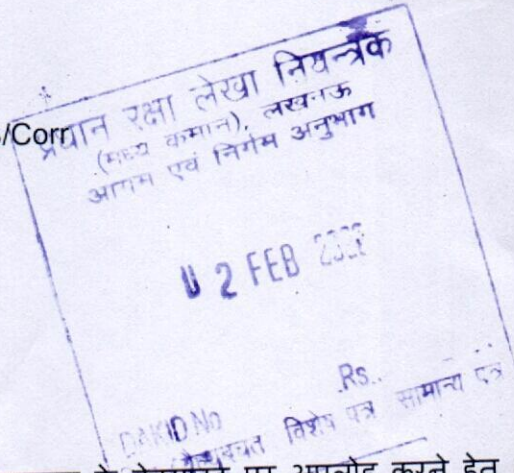 /Corr
प्रधान रक्षा लेखा नियन्त्रक
(मध्य कमान), लखनऊ
आगम एवं निर्गम अनुभाग
0 2 FEB
Rs..
DAKID No
विशेष पत्र सामान्य पत्र
पर अपलोड करने हेतु